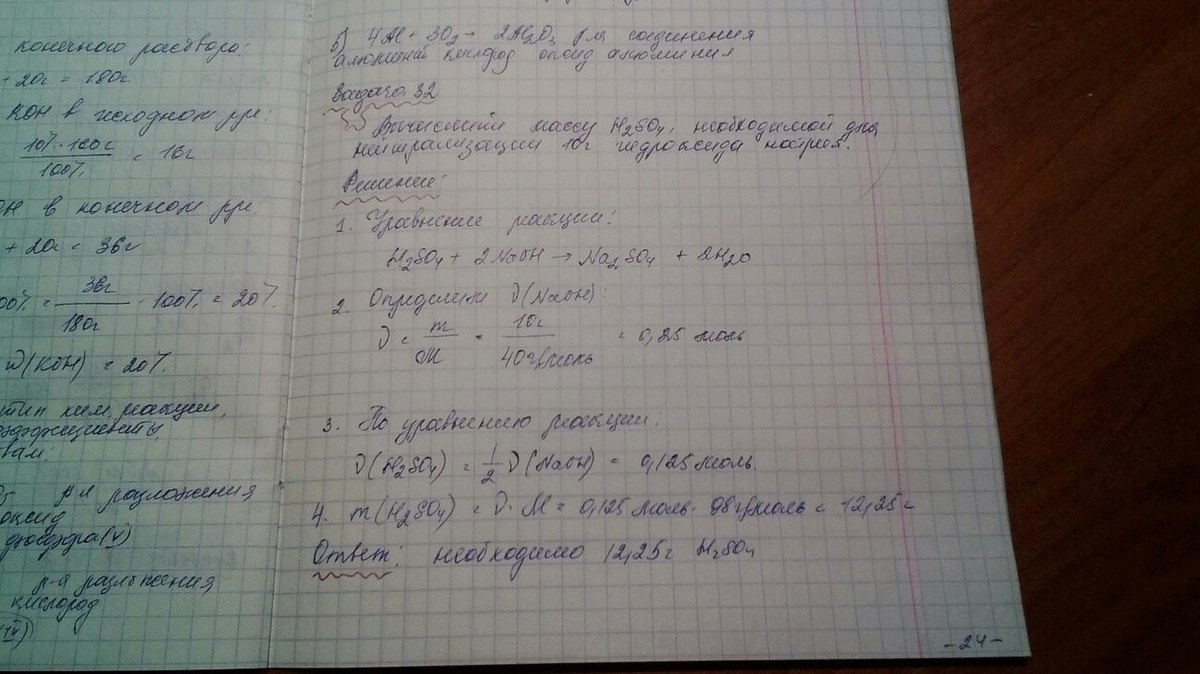 конечного раствора:
+ 20г = 180г
KOH в исходном р-ре:
10% · 160г / 100% = 16г
OH в конечном р-ре
+ 20г = 36г
00% = 36г / 180г · 100% = 20%
ω(KOH) = 20%
тип хим. реакции,
коэффициенты,
вам:
р-я разложения
оксид
фосфора(V)
р-я разложения
кислород
(IV)
б) 4Al + 3O₂ → 2Al₂O₃ р-я соединения
алюминий кислород оксид алюминия
Задача 32
Вычислить массу H₂SO₄, необходимой для
нейтрализации 10г гидроксида натрия.
Решение:
1. Уравнение реакции:
H₂SO₄ + 2NaOH → Na₂SO₄ + 2H₂O
2. Определили ν(NaOH):
ν = m / M = 10г / 40г/моль = 0,25 моль
3. По уравнению реакции:
ν(H₂SO₄) = 1/2 ν(NaOH) = 0,125 моль.
4. m(H₂SO₄) = ν · M = 0,125 моль · 98г/моль = 12,25г
Ответ: необходимо 12,25г H₂SO₄
- 24 -